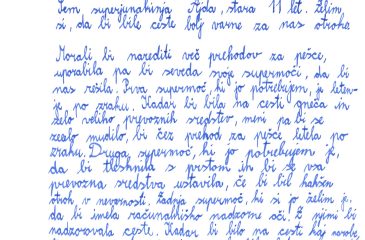 Sem superjunakinja Ajda, stara 11 let. Želim
si, da bi bile ceste bolj varne za nas otroke
Morali bi narediti več prehodov za pešce,
uporabila pa bi seveda svoje supermoči, da bi
nas rešila. Prva supermoč, ki jo potrebujem, je leten-
je po zraku. Kadar bi bila na cesti gneča in
zelo veliko prevoznih sredstev, meni pa bi se
zealo mudilo, bi čez prehod za pešce letela po
zraku. Druga supermoč, ki jo potrebujem je,
da bi tlesknila s prstom in bi se vsa
prevozna sredstva ustavila, če bi bil kakšen
otrok v nevarnosti. Zadnja supermoč, ki si jo želim je,
da bi imela računalniško nadzorne oči. Z njimi bi
nadzorovala ceste. Kadar bi bilo na cesti kaj narobe,